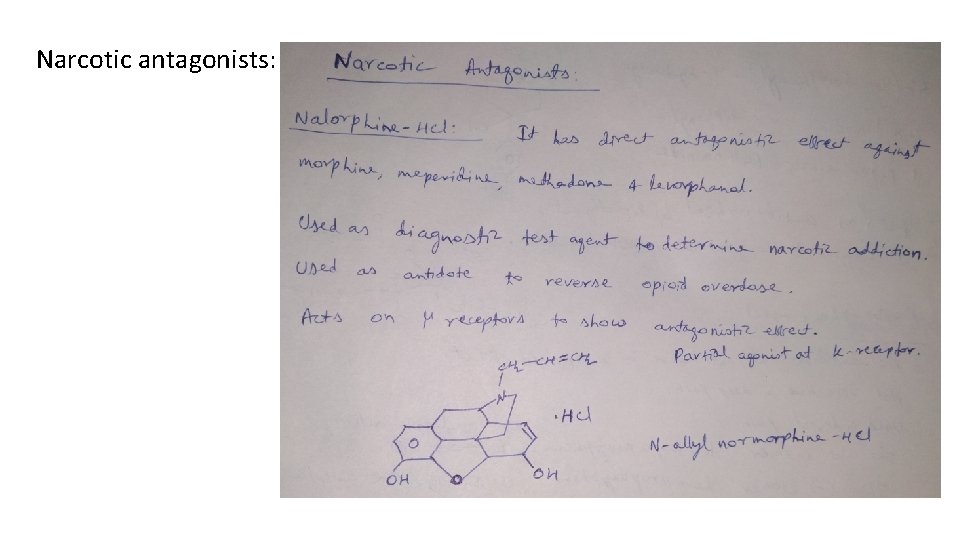 Narcotic antagonists:
Narcotic Antagonists:
Nalorphine-HCl: It has direct antagonistic effect against
morphine, meperidine, methadone & levorphanol.
Used as diagnostic test agent to determine narcotic addiction.
Used as antidote to reverse opioid overdose.
Acts on μ receptors to show antagonistic effect.
Partial agonist at k-receptor.
CH2-CH=CH2
N
·HCl
N-allyl normorphine-HCl
OH O OH